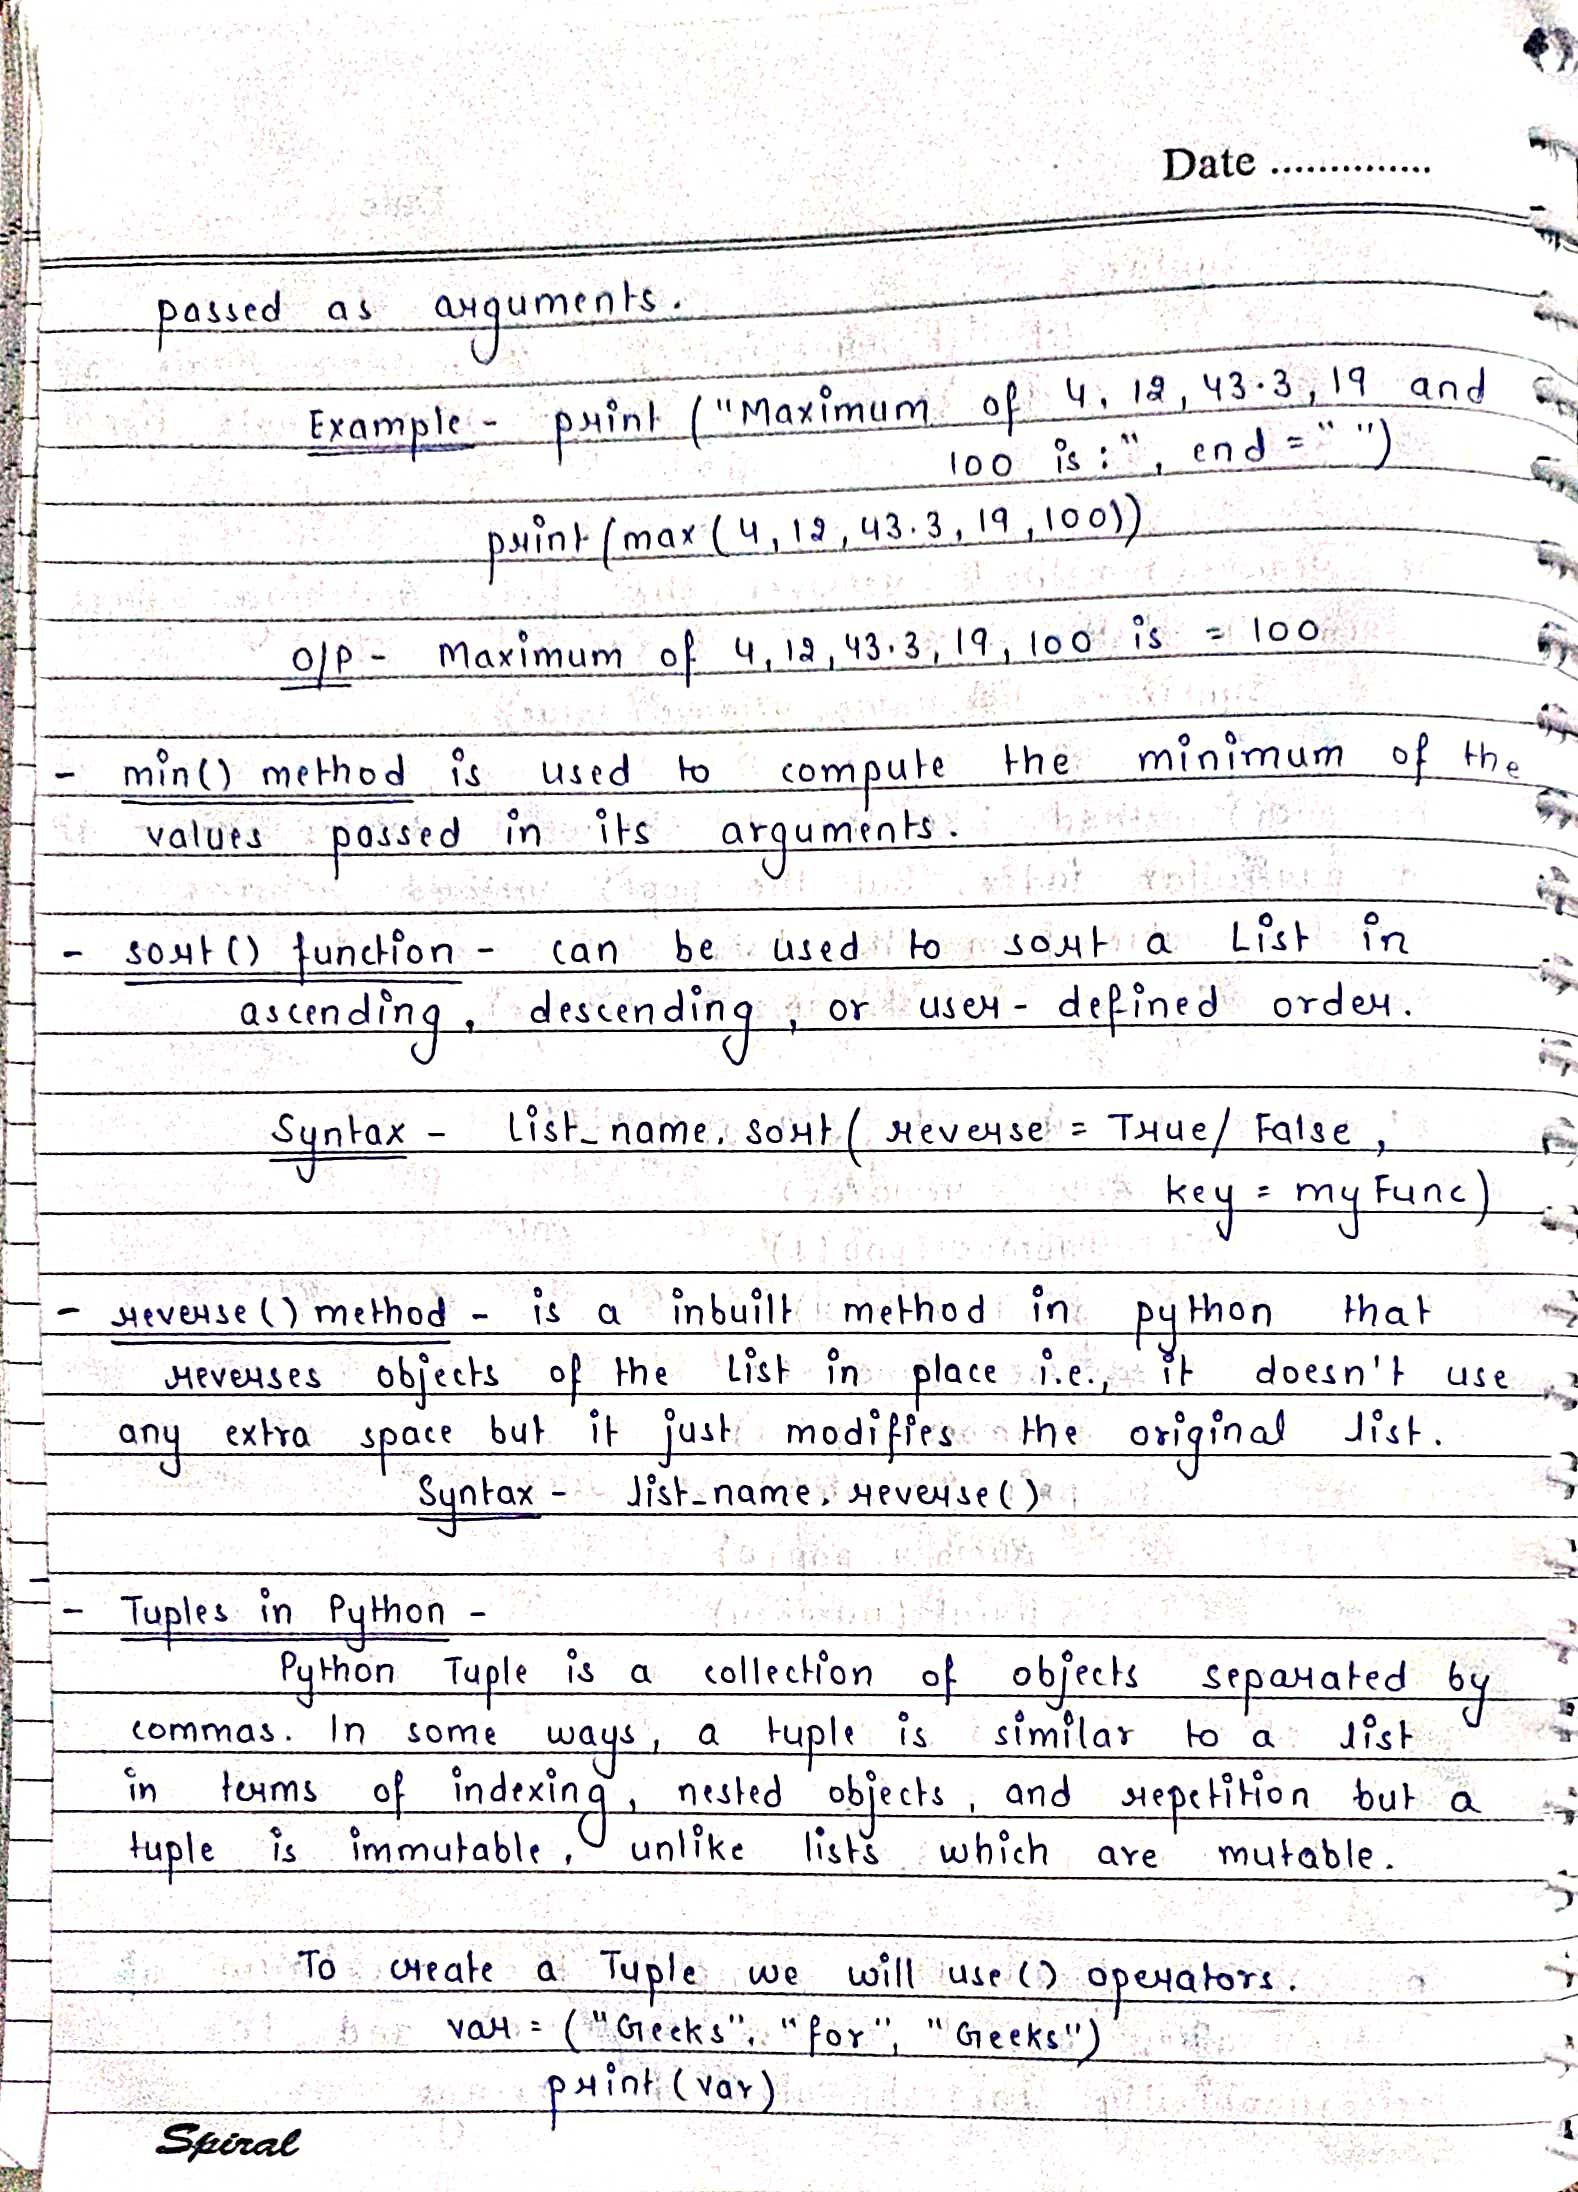 Date ..............
passed as arguments.
Example - print ("Maximum of 4, 12, 43.3, 19 and
100 is :", end = " ")
print (max (4, 12, 43.3, 19, 100))
O/P - Maximum of 4, 12, 43.3, 19, 100 is = 100
- min() method is used to compute the minimum of the
values passed in its arguments.
- sort() function - can be used to sort a List in
ascending, descending, or user-defined order.
Syntax - List_name. sort ( reverse = True/ False,
key = my Func)
- reverse() method - is a inbuilt method in python that
reverses objects of the List in place i.e., it doesn't use
any extra space but it just modifies the original list.
Syntax - list_name. reverse()
- Tuples in Python -
Python Tuple is a collection of objects separated by
commas. In some ways, a tuple is similar to a list
in terms of indexing, nested objects, and repetition but a
tuple is immutable, unlike lists which are mutable.
To create a Tuple we will use () operators.
var = ("Geeks", "for", "Geeks")
print (var)
Spiral